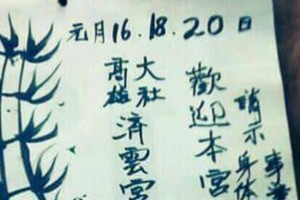 元月16.18.20日
高雄大社
濟雲宮
歡迎本宮
請示身体